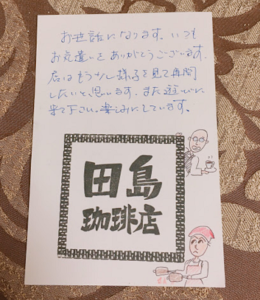 お世話になります。いつも
お気遣いをありがとうございます。
店はもう少し様子を見て再開
したいと思います。また遊びに
来て下さい。楽しみにしています。
田島
珈琲店